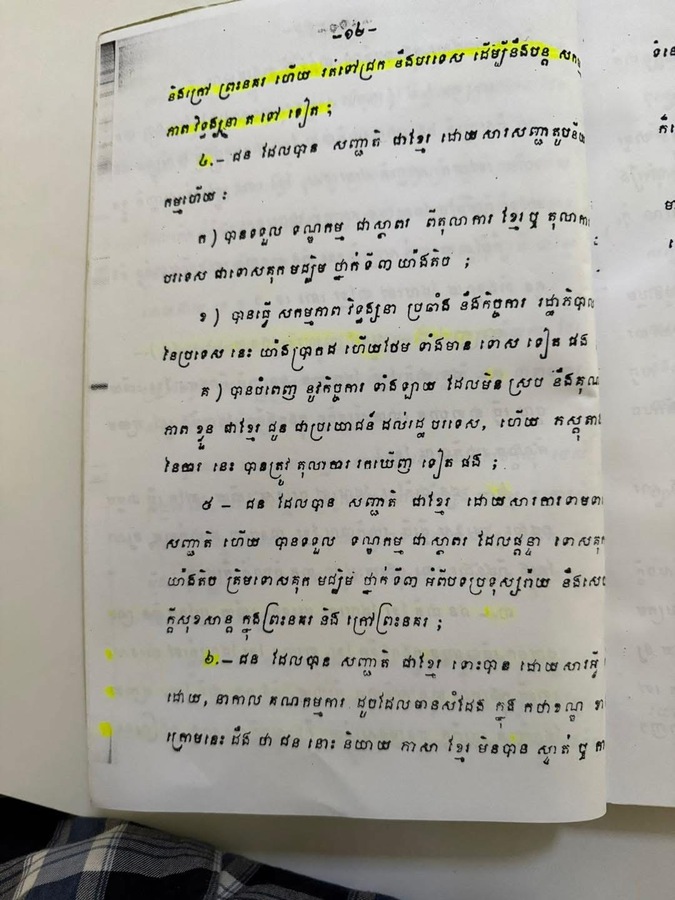 –១៤–
និងក្រៅ ព្រះនគរ ហើយ រត់ទៅជ្រក នឹងបរទេស ដើម្បីនឹងបន្ត សកម្ម
ភាព វិទ្ធង្សនា ត ទៅ ទៀត ;
៤.– ជន ដែលបាន សញ្ជាតិ ជាខ្មែរ ដោយសារសញ្ជាតូបនីយ
កម្មហើយ :
ក ) បានទទួល ទណ្ឌកម្ម ជាស្ថាពរ ពីតុលាការ ខ្មែរឬ តុលាការ
បរទេស ជាទោសគុកមជ្ឈិម ថ្នាក់ ទី៣ យ៉ាងតិច ;
ខ ) បានធ្វើ សកម្មភាព វិទ្ធង្សនា ប្រឆាំង នឹងកិច្ចការ រដ្ឋាភិបាល
នៃប្រទេស នេះ យ៉ាងប្រាកដ ហើយថែម ទាំងមាន ទោស ទៀត ផង
គ ) បានបំពេញ នូវកិច្ចការ ទាំងឡាយ ដែលមិន ស្រប នឹងគុណ
ភាព ខ្លួន ជាខ្មែរ ជូន ជាប្រយោជន៍ ដល់រដ្ឋ បរទេស, ហើយ ភស្តុតាង
នៃការ នេះ បានត្រូវ តុលាការ រកឃើញ ទៀត ផង ;
៥ – ជន ដែលបាន សញ្ជាតិ ជាខ្មែរ ដោយសារការទាមទារ
សញ្ជាតិ ហើយ បានទទួល ទណ្ឌកម្ម ជាស្ថាពរ ដែលផ្ដន្ទា ទោសគុក
យ៉ាងតិច ត្រឹមទោសគុក មជ្ឈិម ថ្នាក់ទី៣ អំពីបទប្រទុស្តរ៉ាយ នឹងសេច
ក្ដីសុខសាន្ត ក្នុងព្រះនគរ និង ក្រៅព្រះនគរ ;
៦.– ជន ដែលបាន សញ្ជាតិ ជាខ្មែរ ទោះបាន ដោយសារអ្វី
ដោយ, នាកាល គណកម្មការ ដូចដែលមានសំដែង ក្នុង កថាខណ្ឌ ខាង
ក្រោមនេះ ដឹង ថា ជន នោះ និយាយ ភាសា ខ្មែរ មិនបាន ស្ទាត់ ឬ